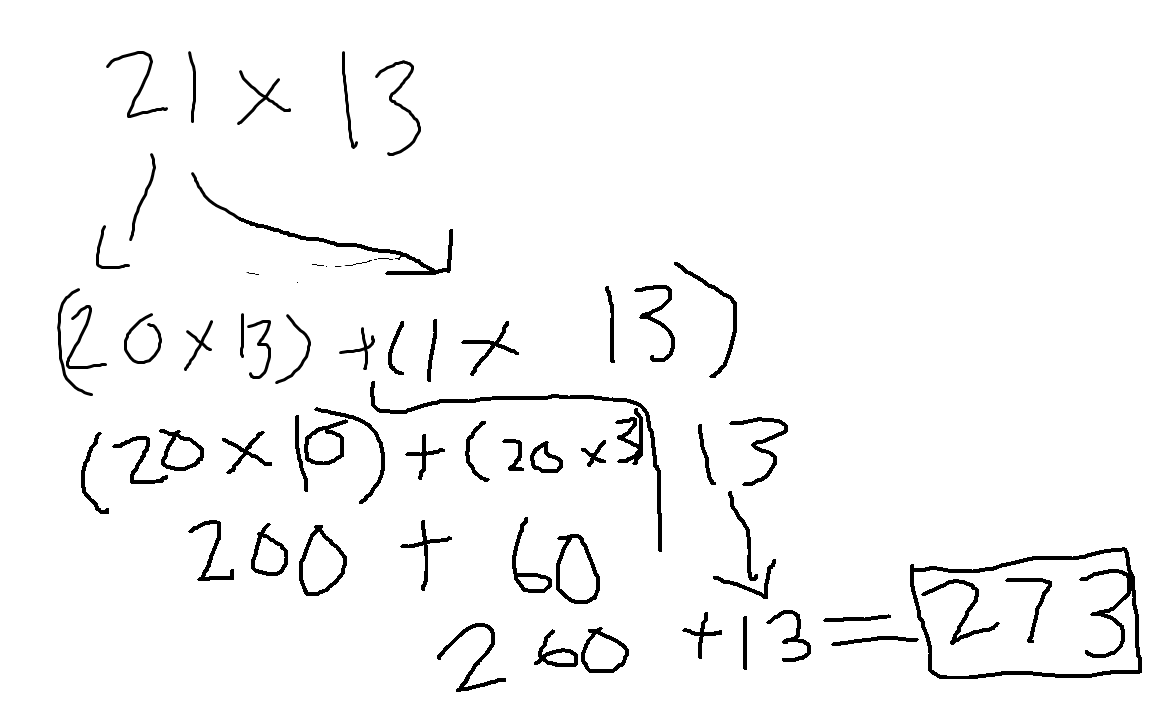 21 × 13
(20 × 13) + (1 × 13)
(20 × 10) + (20 × 3) 13
200 + 60
260 + 13 = 273